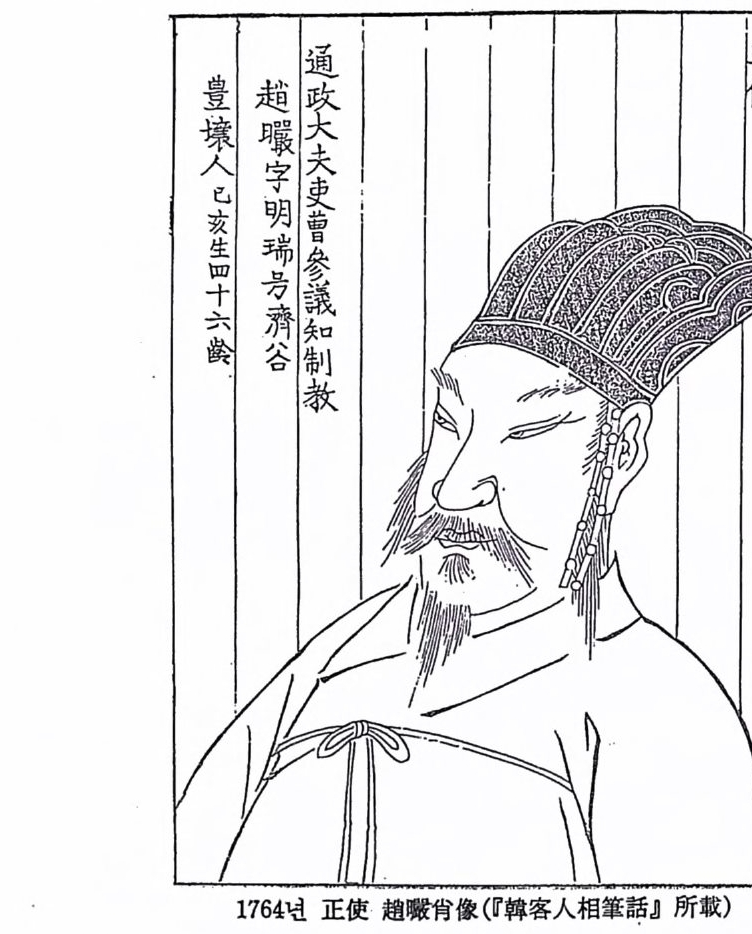 通政大夫吏曹參議知制敎
趙曮字明瑞号濟谷
豊壤人 己亥生四十六齡
1764년 正使 趙曮肖像(『韓客人相筆話』所載)